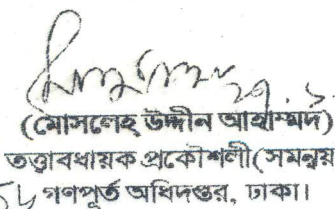 ২৭.১
(মোসলেহ উদ্দীন আহাম্মদ)
তত্ত্বাবধায়ক প্রকৌশলী(সমন্বয়
গণপূর্ত অধিদপ্তর, ঢাকা।